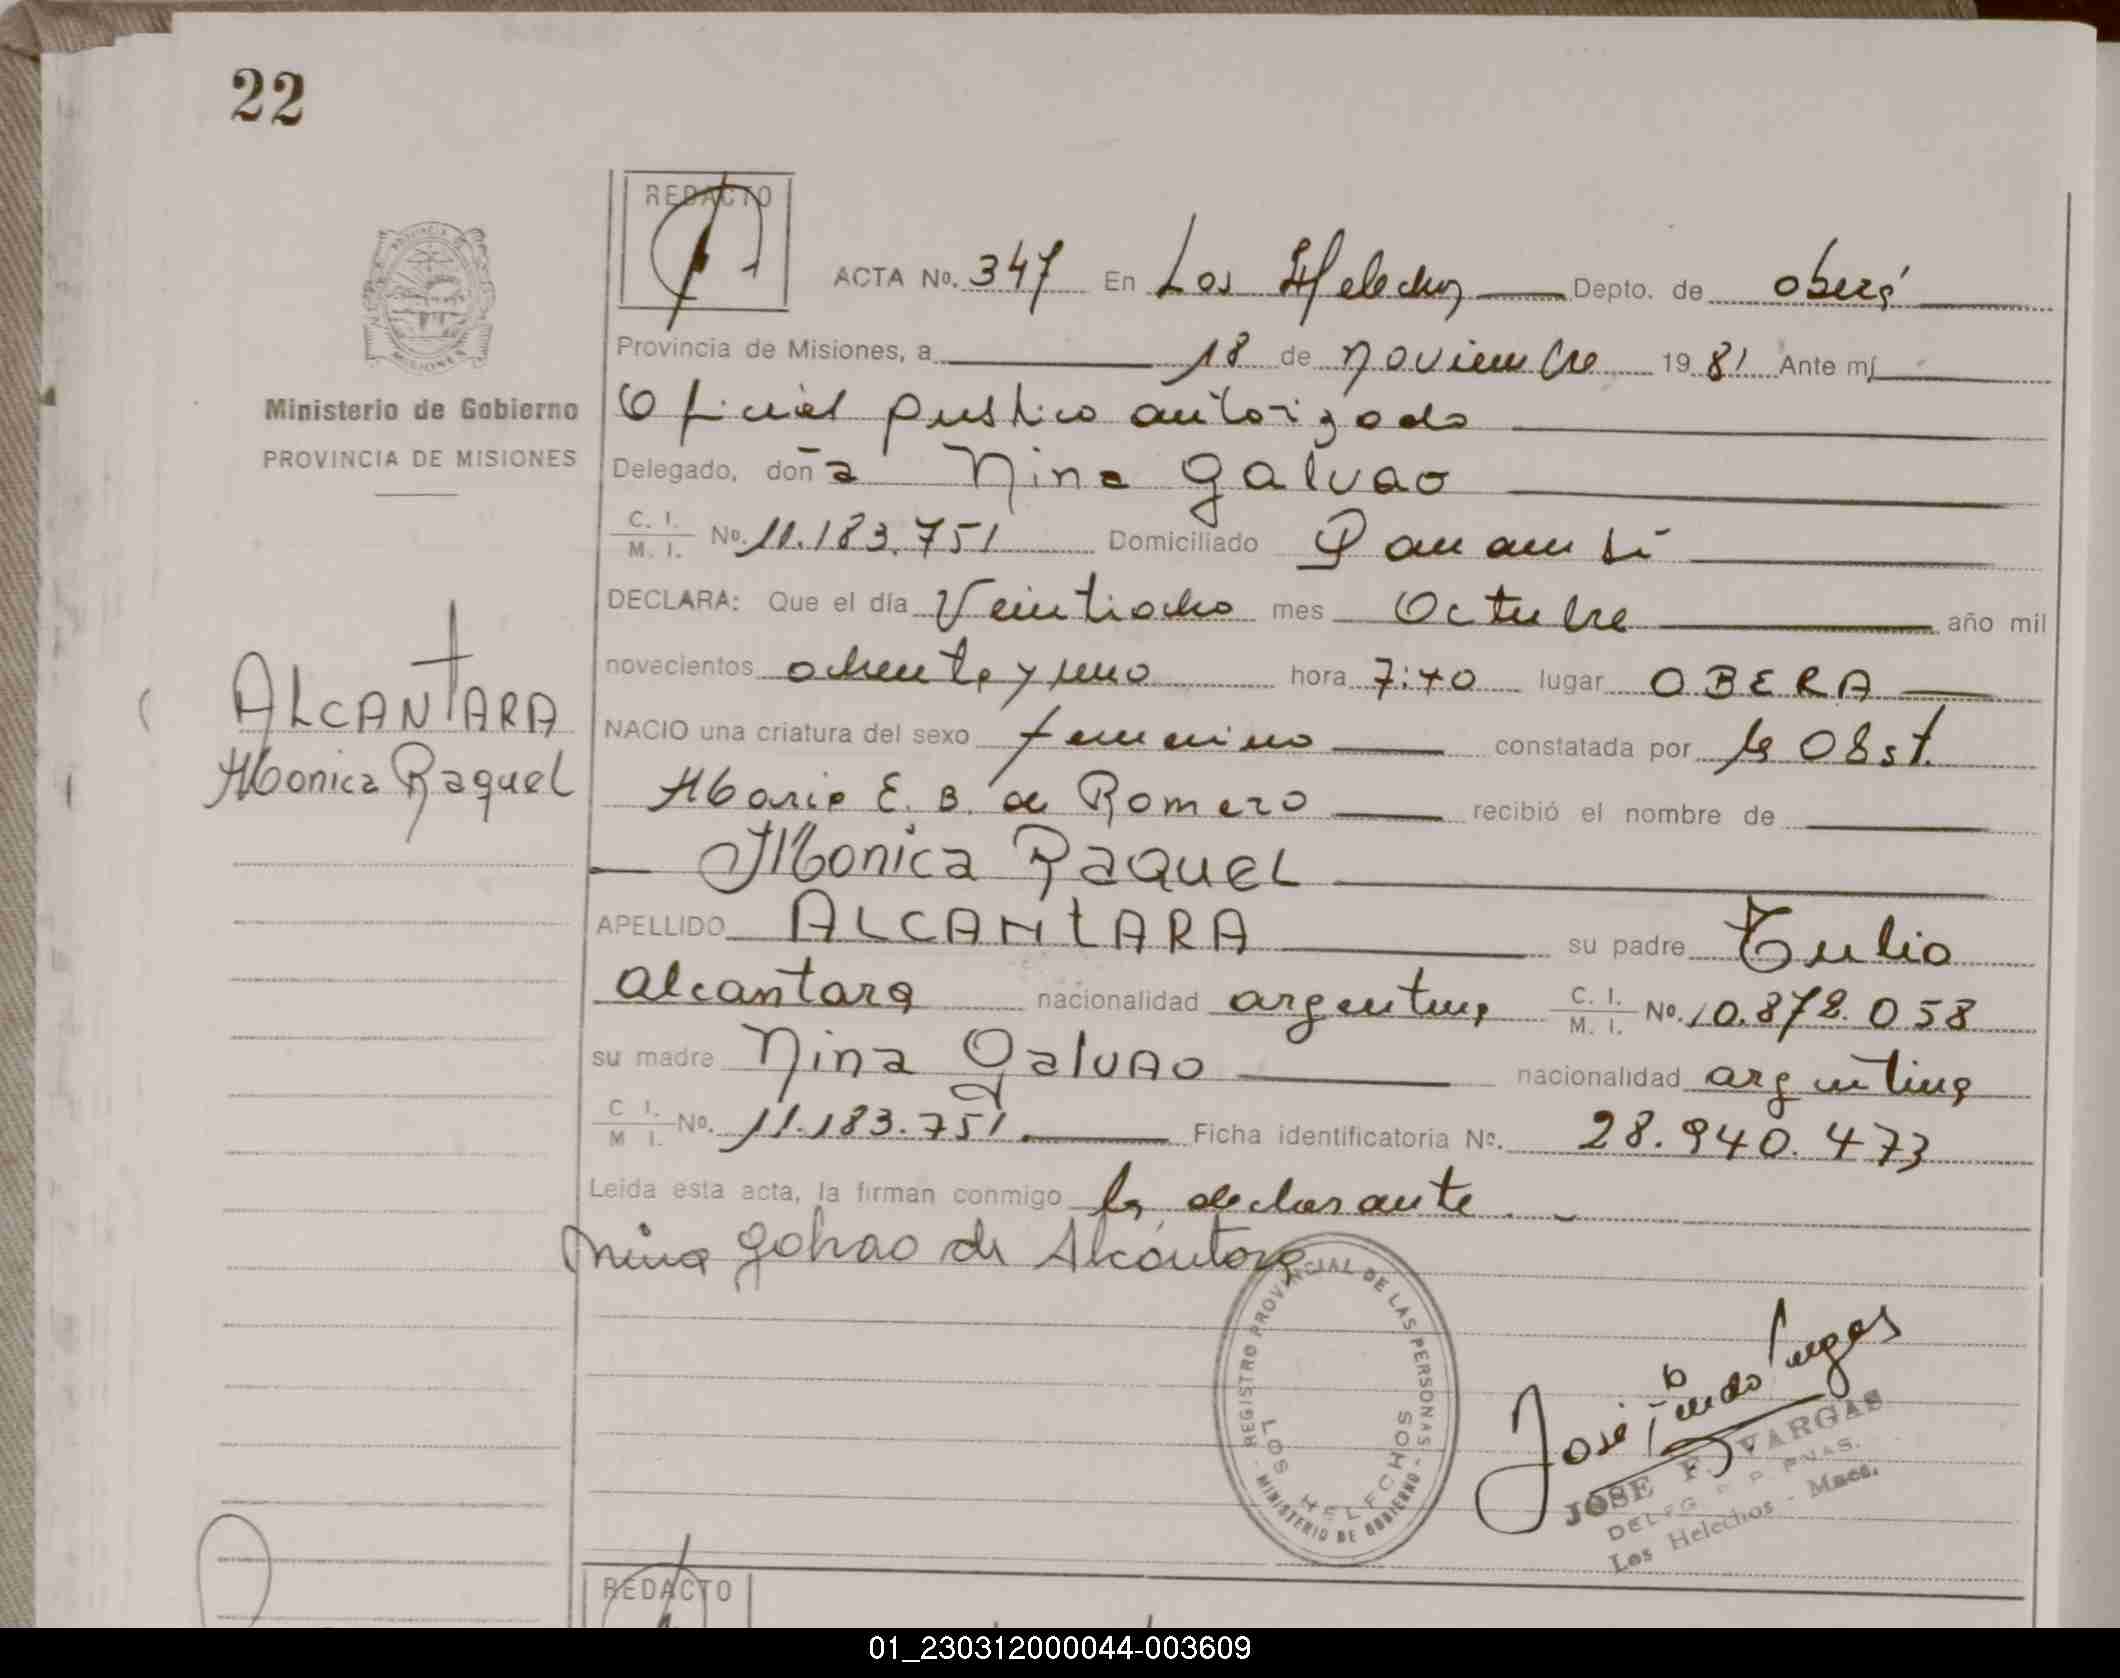 22
REDACTO
ACTA No. 347 En Los Helechos Depto. de Oberá
Provincia de Misiones, a 18 de noviembre 1981 Ante mí
Ministerio de Gobierno
PROVINCIA DE MISIONES
Oficial publico autorizado
Delegado, doña Nina Galvao
C. I.
M. I. No. 11.183.751 Domiciliado Panambí
DECLARA: Que el día Veintiocho mes Octubre año mil
novecientos ochenta y uno hora 7:40 lugar OBERA
ALCANTARA
Monica Raquel
NACIO una criatura del sexo femenino constatada por la Obst.
Maria E. B. de Romero recibió el nombre de
Monica Raquel
APELLIDO ALCANTARA su padre Tulio
Alcantara nacionalidad argentina C. I.
M. I. No. 10.872.058
su madre Nina Galvao nacionalidad argentina
C I.
M I. No. 11.183.751 Ficha identificatoria No. 28.940.473
Leída esta acta, la firman conmigo la declarante
Nina Galvao de Alcántara
REGISTRO PROVINCIAL DE LAS PERSONAS
LOS HELECHOS
MINISTERIO DE GOBIERNO
José Vargas
JOSE F. VARGAS
DELEG. R. P. PNAS.
Los Helechos - Mnes.
REDACTO
01_230312000044-003609